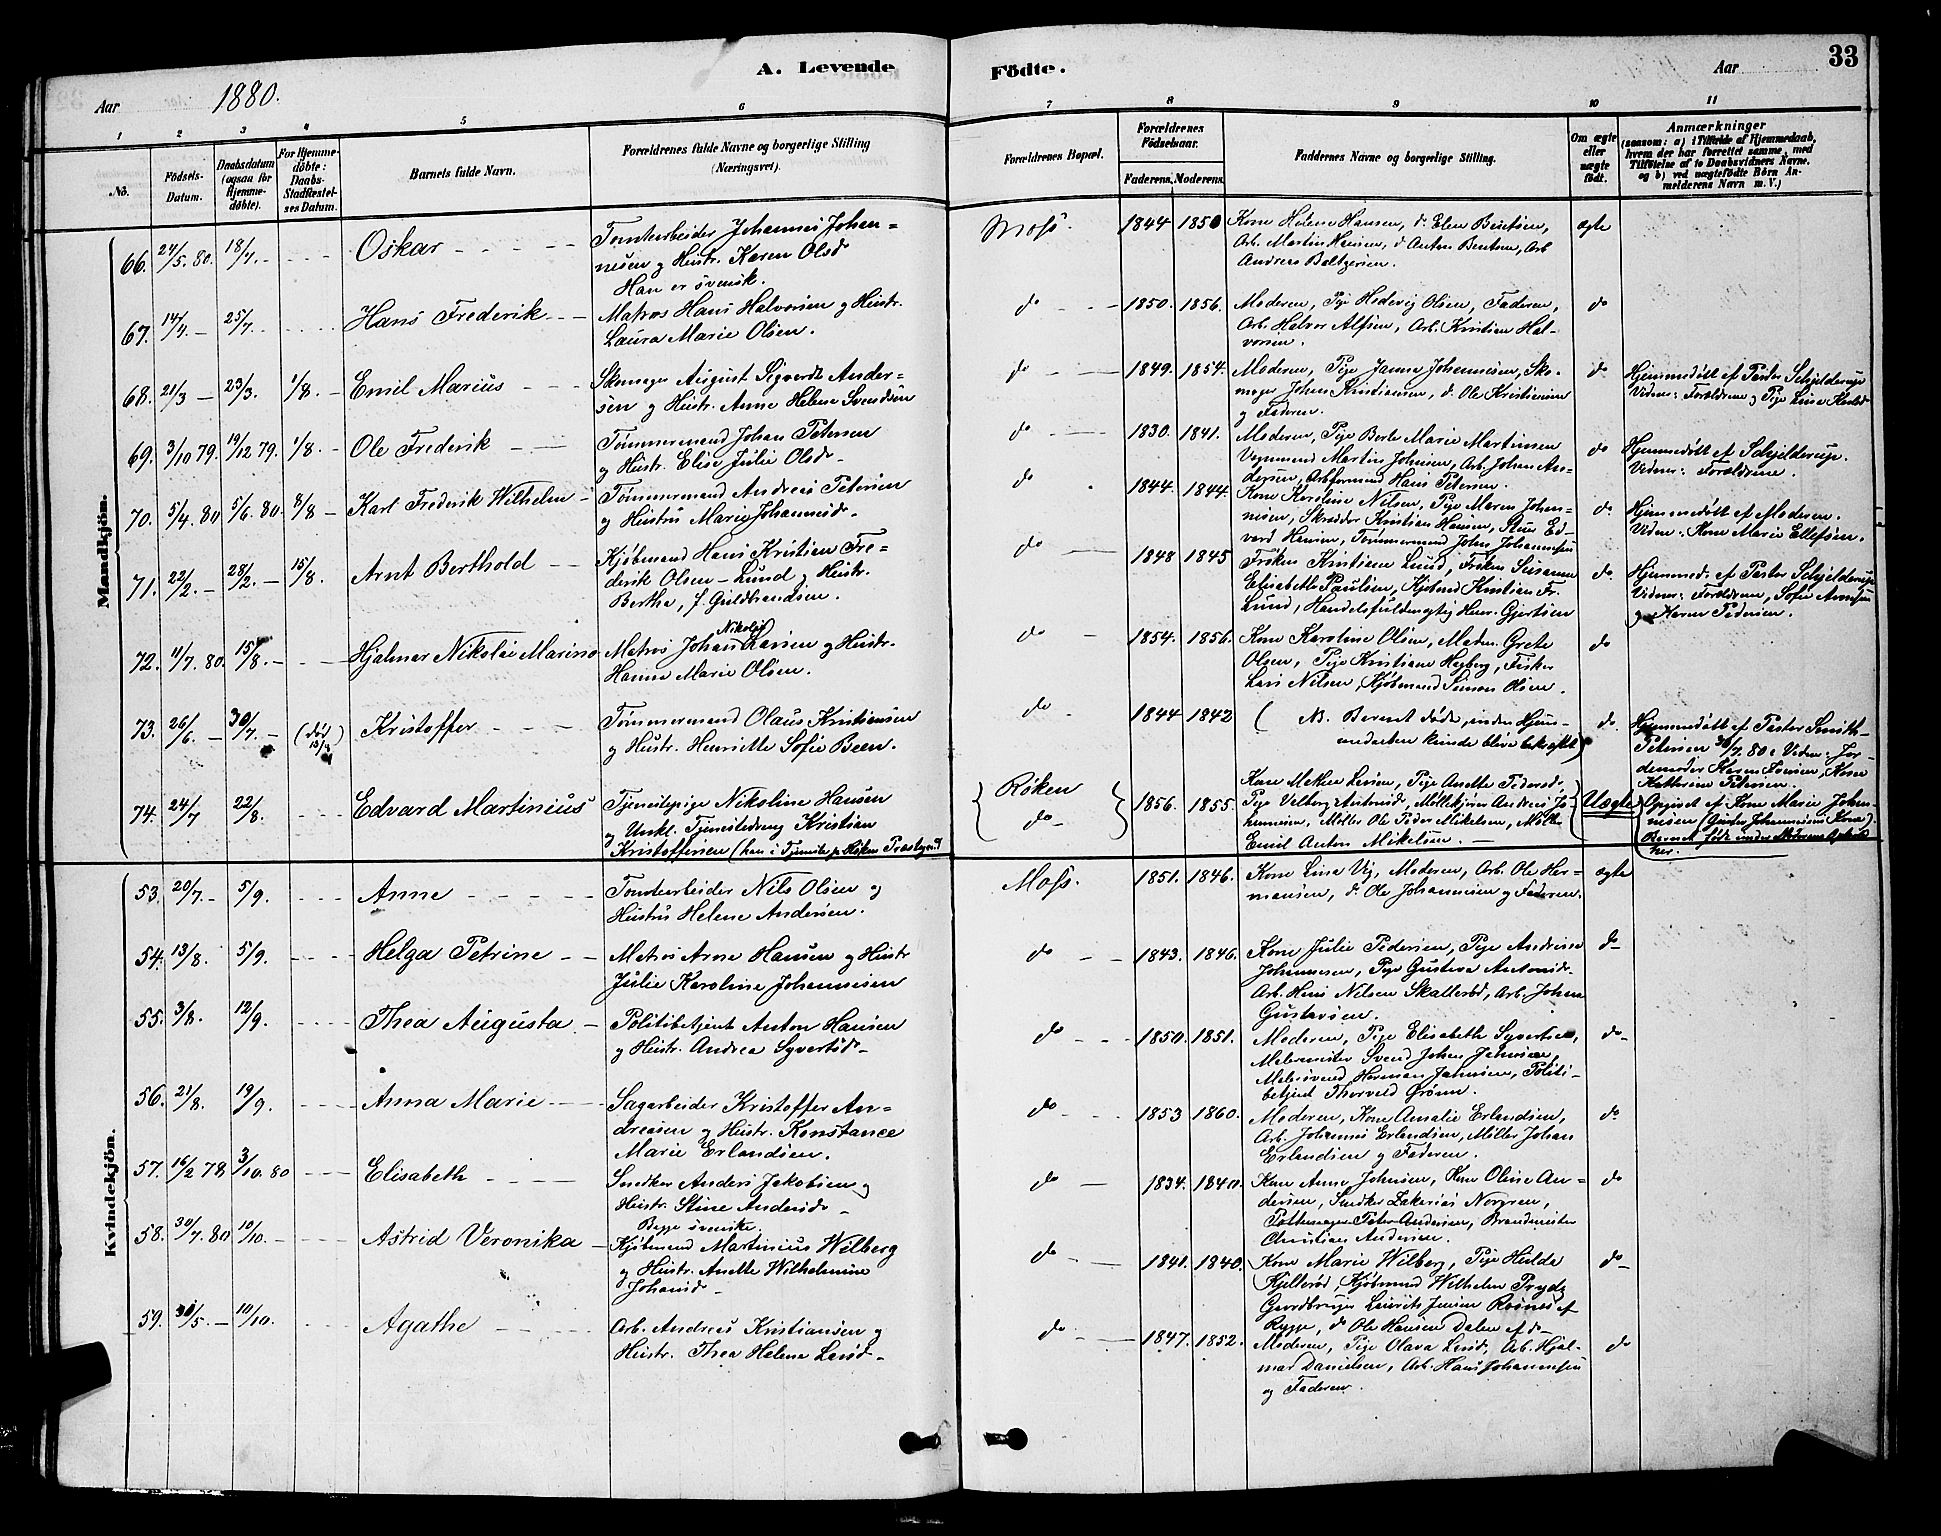 A. Levende Födte.
33
Aar 1880.
Aar
1 2 3 4 5 6 7 8 9 10 11
No.
Födsels-Datum.
Daabsdatum (ogsaa for Hjemmedöbte).
For Hjemmedöbte: Daabs-Stadfæstelses Datum.
Barnets fulde Navn.
Forældrenes fulde Navne og borgerlige Stilling (Næringsvei).
Forældrenes Bopæl.
Forældrenes Födselsaar.
Faderens. Moderens.
Faddernes Navne og borgerlige Stilling.
Om ægte eller uægte födt.
Anmærkninger
(saasom: a) i Tilfælde af Hjemmedaab, hvem der har forrettet samme, med Tilföielse af to Daabsvidners Navne, og b) ved uægtefödte Börn Anmelderens Navn m. V.)
Mandkjön.
66. 24/5. 80. 18/7. Oskar
Tomtearbeider Johannes Johan=
nesen og Hustr. Karen Olsd
Han er svensk.
Moss. 1844 1850
Kone Helene Hansen, do Elen Bentsen,
Arb. Martin Hansen, do Anton Bentsen, Arb
Andreas Baltzersen.
ægte
67. 14/4. – 25/7. Hans Frederik
Matros Hans Halvorsen og Hustr.
Laura Marie Olsen.
do 1850. 1856.
Moderen, Pige Hedevig Olsen, Faderen,
Arb. Halvor Alfsen, Arb. Kristian Hal-
vorsen.
do
68. 21/3 – 23/3. 1/8. Emil Marius
Skomager August Sigvardt Ander=
sen og Hustr. Anne Helene Svendsen
do 1849. 1854.
Moderen, Pige Janna Johannesen, Sko-
mager Johan Kristiansen, do. Ole Kristiansen
og Faderen.
do
Hjemmedöbt af Pastor Schjelderup
Vidner: Forældrene og Pige Lina
69. 3/10 79. 19/12 79. 1/8. Ole Frederik
Tømmermand Johan Petersen
og Hustr. Elise Julie Olsd.
do 1830. 1841.
Moderen, Pige Berte Marie Martinsen
Vognmand Martin Johnsen, Arb. Johan An-
dersen, Arbformand Hans Petersen.
do
Hjemmedöbt af Schjelderup.
Vidner: Forældrene.
70. 5/4. 80 5/6. 80. 8/8 Karl Frederik Wilhelm
Tømmermand Andreas Petersen
og Hustru Marie Johannesd.
do 1844. 1844.
Kone Karoline Nilsen, Pige Maren Johan-
nesen, Skrædder Kristian Hansen, Stuer Ed-
vard Hansen, Tømmermand Johs. Johannesen
do.
Hjemmedöbt af Moderen.
Vidne: Kone Marie Ellefsen.
71. 22/2. – 28/2. – 15/8. Arnt Berthold
Kjøbmand Hans Kristian Fre=
derik Olsen-Lund og Hustr.
Berthe, f. Guldbrandsen.
do 1848 1845
Frøken Kristiane Lund, Frøken Susanne
Elisabette Paulsen, Kjøbmd Kristian Fr.
Lund, Handelsfuldmægtig Henr. Gjertsen
do.
Hjemmed. af Pastor Schjelderup
Vidner: Forældrene, Sofie
og Maren Pedersen.
72. 11/7. 80. 15/8. Hjalmar Nikolai Marino
Matros Johan Nikolai Larsen og Hustr.
Hanna Marie Olsen.
do 1854. 1856.
Kone Karoline Olsen, Madm. Grete
Olsen, Pige Kristiane Høyberg, Fisker
Lars Nilsen, Kjøbmand Simon Olsen.
do
73. 26/6. – 30/7. – (död 13/8) Kristoffer
Tømmermand Olaus Kristiansen
og Hustr. Henriette Sofie Been.
do 1844 1842
(NB. Barnet døde, inden Hjem-
medaaben kunde blive bekræftet)
do.
Hjemmedöbt af Pastor Smith-
Petersen 30/7 80: Vidner: Jor
demoder Karen Iversen, Kone
Kathrine Petersen.
74. 24/7 22/8. Edvard Martinius
Tjenestepige Nikoline Hansen
og Unkl. Tjenestedreng Kristian
Kristoffersen (han i Tjeneste paa Røken Præstegaard)
Røken
do
1856. 1855.
Kone Mathea Larsen, Pige Anette Pedersd.,
Pige Valborg Antonsd., Møllekjører Andreas Jo-
hannesen, Møller Ole Peder Mikelsen, Møller
Emil Anton Mikelsen.
Uægte
Opgivet af Kone Marie Johan-
nesen (Gustav Johannesens Kone).
Barnet født under Moderens Ophold
her.
Kvindekjön.
53. 20/7. – 5/9. Anne
Tomtearbeider Nils Olsen og
Hustru Helene Andersen.
Moss. 1851. 1846.
Kone Lina Vig, Moderen, Arb. Ole Her-
mansen, do Ole Johannesen og Faderen.
ægte
54. 13/8. 5/9. Helga Petrine
Matros Arne Hansen og Hustr
Julie Karoline Johannesen
do 1843. 1846.
Kone Julie Pedersen, Pige Andrine
Johannesen, Pige Gustava Antonsd.
Arb. Hans Nilsen Skallerød, Arb. Johan
Gustavsen.
do
55. 3/8. 12/9. Thea Augusta
Politibetjent Anton Hansen
og Hustr. Andrea Syvertsd.
do 1850. 1851.
Moderen, Pige Elisabeth Syvertsen,
Malermester Svend Johan Jahnsen,
Malersvend Herman Jahnsen, Politi-
betjent Thorvald Grønn.
do
56. 21/8. 19/9. Anna Marie
Sagarbeider Kristoffer An=
dreasen og Hustr. Konstance
Marie Erlandsen.
do 1853 1860.
Moderen, Kone Amalie Erlandsen,
Arb. Johannes Erlandsen, Møller Johan
Erlandsen og Faderen.
do
57. 16/2 78 3/10. 80 Elisabeth
Snedker Anders Jakobsen og
Hustr. Stine Andersd.
Begge svenske.
do 1834. 1840.
Kone Anne Johnsen, Kone Oline An=
dersen, Snedker Zakarias Norgren,
Pottemager Peter Andersen, Brandmester
Christian Andersen.
do
58. 30/7. 80 10/10. Astrid Veronika
Kjøbmand Martinius Wilberg
og Hustr. Anette Wilhelmine
Johansd.
do 1841. 1840.
Kone Marie Wilberg, Pige Hulda
Kjellerød, Kjøbmand Wilhelm Prydz
Gaardbruger Laurits Jensen Rosnes af
Rygge, do Ole Hansen Dalen af do
do
59. 30/5. – 10/10. Agathe
Arb. Andreas Kristiansen og
Hustr. Thea Helene Larsd.
do 1847. 1852.
Moderen, Pige Olava Larsd., Arb. Hjal-
mar Danielsen, Arb. Hans Johannesen
og Faderen.
do